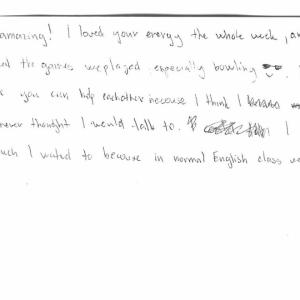 amazing! I loved your energy the whole week, an
the games we played, especially bowling
you can help eachother because I think I
never thought I would talk to. I
uch I wated to because in normal English class we